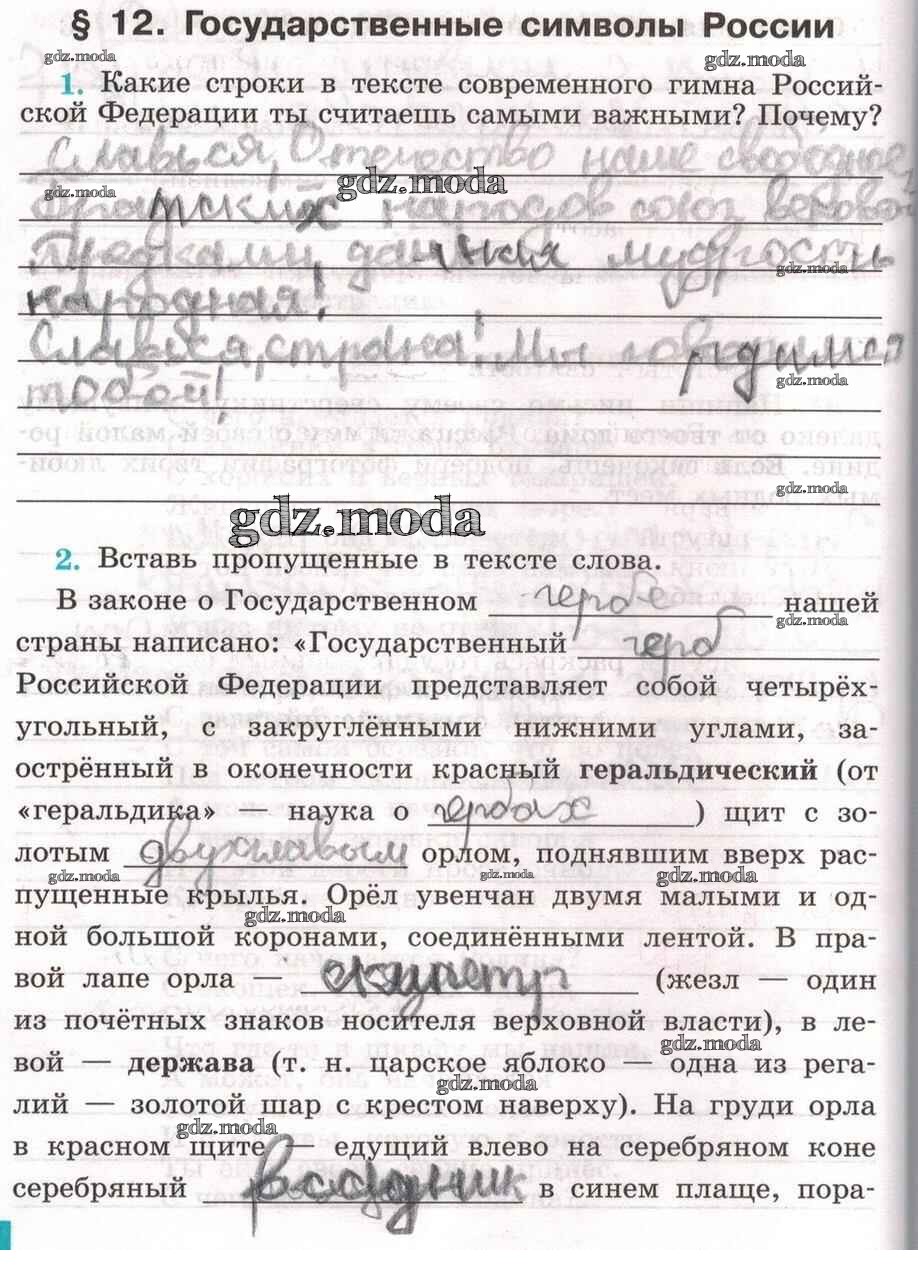 § 12. Государственные символы России
gdz.moda
gdz.moda
1. Какие строки в тексте современного гимна Россий-
ской Федерации ты считаешь самыми важными? Почему?
Славься, Отечество наше свободное,
gdz.moda
gdz.moda
братских народов союз веково
Предками данная мудрость
gdz.moda
народная!
Славься, страна! Мы гордимся
gdz.moda
тобой!
gdz.moda
gdz.moda
2. Вставь пропущенные в тексте слова.
В законе о Государственном гербе нашей
gdz.moda
страны написано: «Государственный герб
Российской Федерации представляет собой четырёх-
угольный, с закруглёнными нижними углами, за-
острённый в оконечности красный геральдический (от
«геральдика» — наука о гербах) щит с зо-
лотым двухглавым орлом, поднявшим вверх рас-
gdz.moda
gdz.moda
gdz.moda
пущенные крылья. Орёл увенчан двумя малыми и од-
gdz.moda
ной большой коронами, соединёнными лентой. В пра-
вой лапе орла — скипетр (жезл — один
из почётных знаков носителя верховной власти), в ле-
gdz.moda
вой — держава (т. н. царское яблоко — одна из рега-
gdz.moda
лий — золотой шар с крестом наверху). На груди орла
gdz.moda
в красном щите — едущий влево на серебряном коне
серебряный всадник в синем плаще, пора-